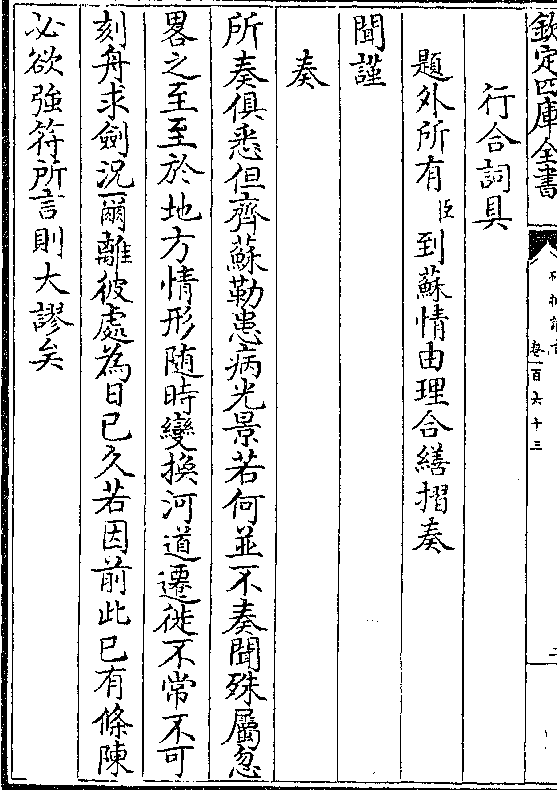 欽定四庫全書
卷一百六十三
行合詞具
題外所有臣到蘇情由理合繕摺奏
聞謹
奏
所奏俱悉但齊蘇勒患病光景若何並不奏聞殊屬忽
畧之至至於地方情形随時變換河道遷徙不常不可
刻舟求劍況爾離彼處為日已久若因前此已有條陳
必欲強符所言則大謬矣